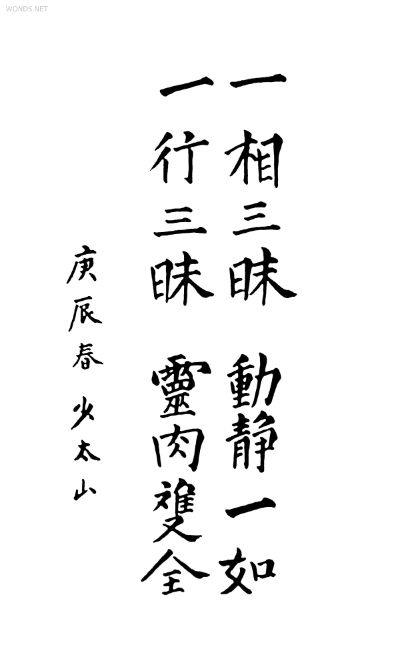 WONDS.NET
一相三昧 動静一如
一行三昧 靈肉雙全
庚辰春 少太山